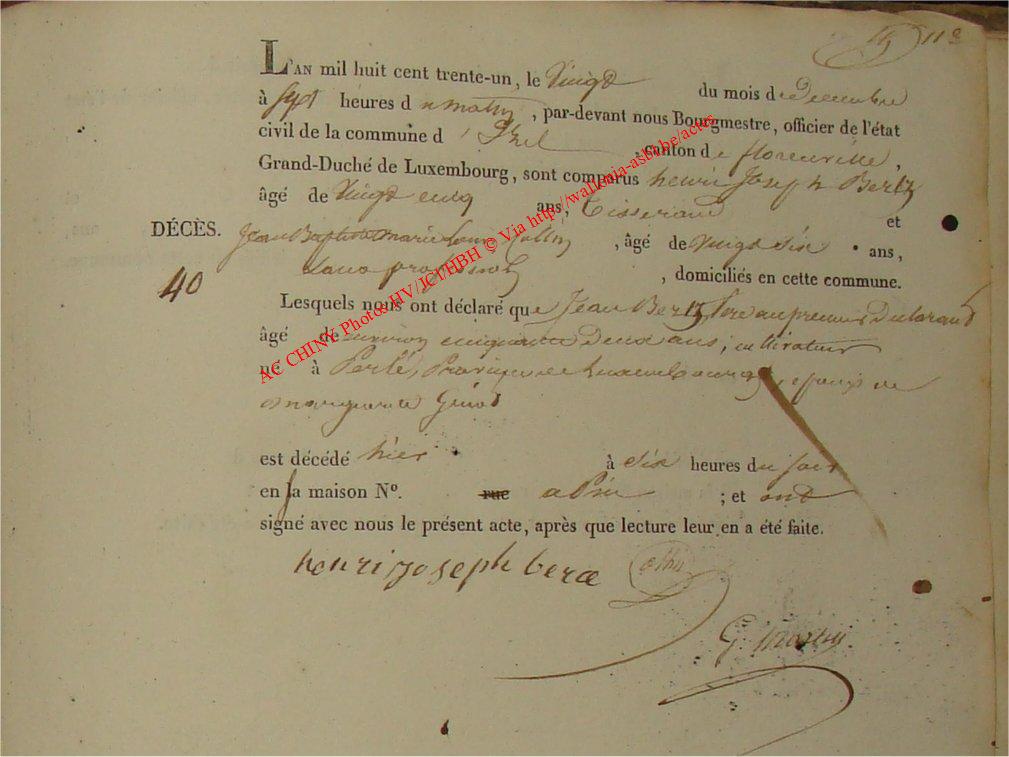 19 112
L'AN mil huit cent trente-un, le Vingt du mois de Decembre
à Sept heures du matin, par-devant nous Bourgmestre, officier de l'état
civil de la commune d' Izel, canton de florenville,
Grand-Duché de Luxembourg, sont comparus henri Joseph Bertz
âgé de Vingt cinq ans, Tisserand et
DÉCÈS.
40
Jean Baptiste Marie Collin, âgé de Vingt Six ans,
, domiciliés en cette commune.
Lesquels nous ont déclaré que Jean Bertz Pere au premier declarant
âgé de environ cinquante Deux ans, cultivateur
né à Perlé, Province de Luxembourg, epoux de
marguerite
est décédé hier à Six heures du soir
en sa maison No. rue a ; et ont
signé avec nous le présent acte, après que lecture leur en a été faite.
henri joseph berce
G
AC CHINY Photos HV/JCI/HBH © Via http://wallonia-asbl.be/actes